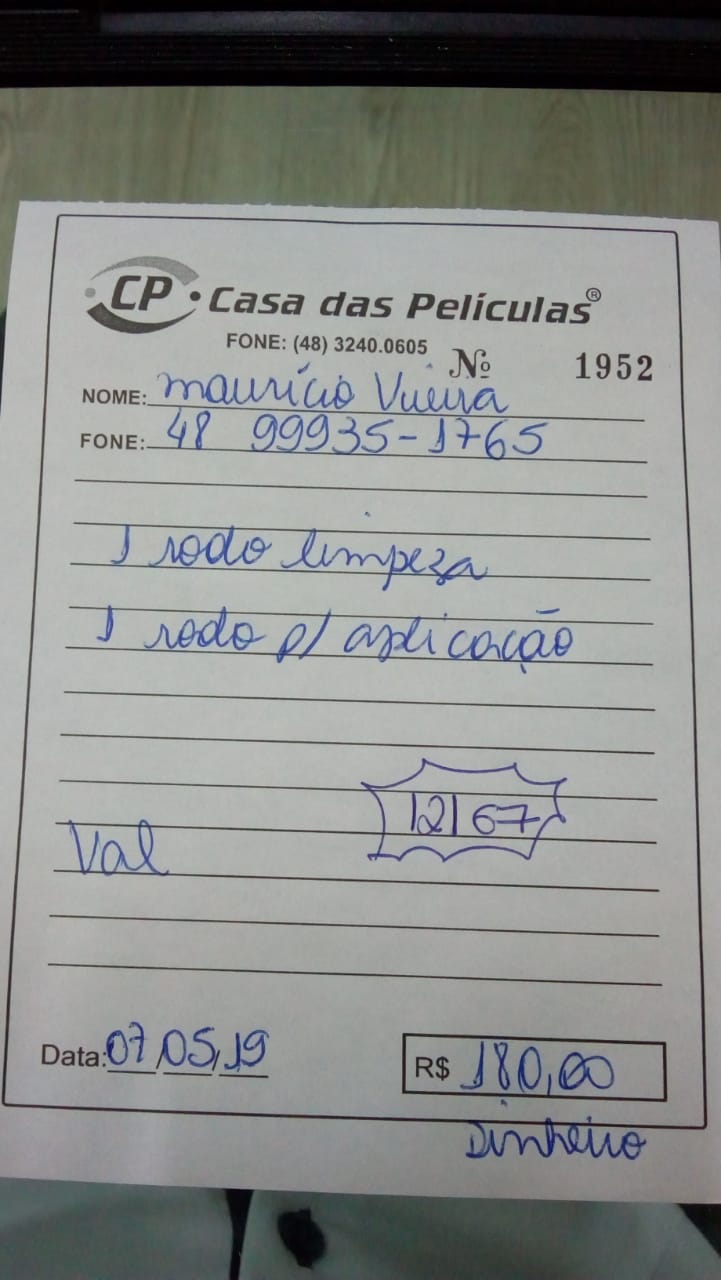 CP • Casa das Películas®
FONE: (48) 3240.0605
Nº 1952
NOME: maurício Vieira
FONE: 48 99935-1765
1 rodo limpeza
1 rodo p/ aplicação
12167
Val
Data: 07/05/19
R$ 180,00
Dinheiro